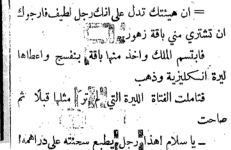 = ان هيئتك تدل على انك رجل لطيف فارجوك
ان تشتري مني باقة زهور
فابتسم الملك واخذ منها باقة بنفسج واعطاها
ليرة انكليزية وذهب
فتاملت الفتاة الليرة التي لم تر مثلها قبلاً ثم
صاحت
ـ يا سلام اهذا رجل يطبع سحنته على دراهمه!